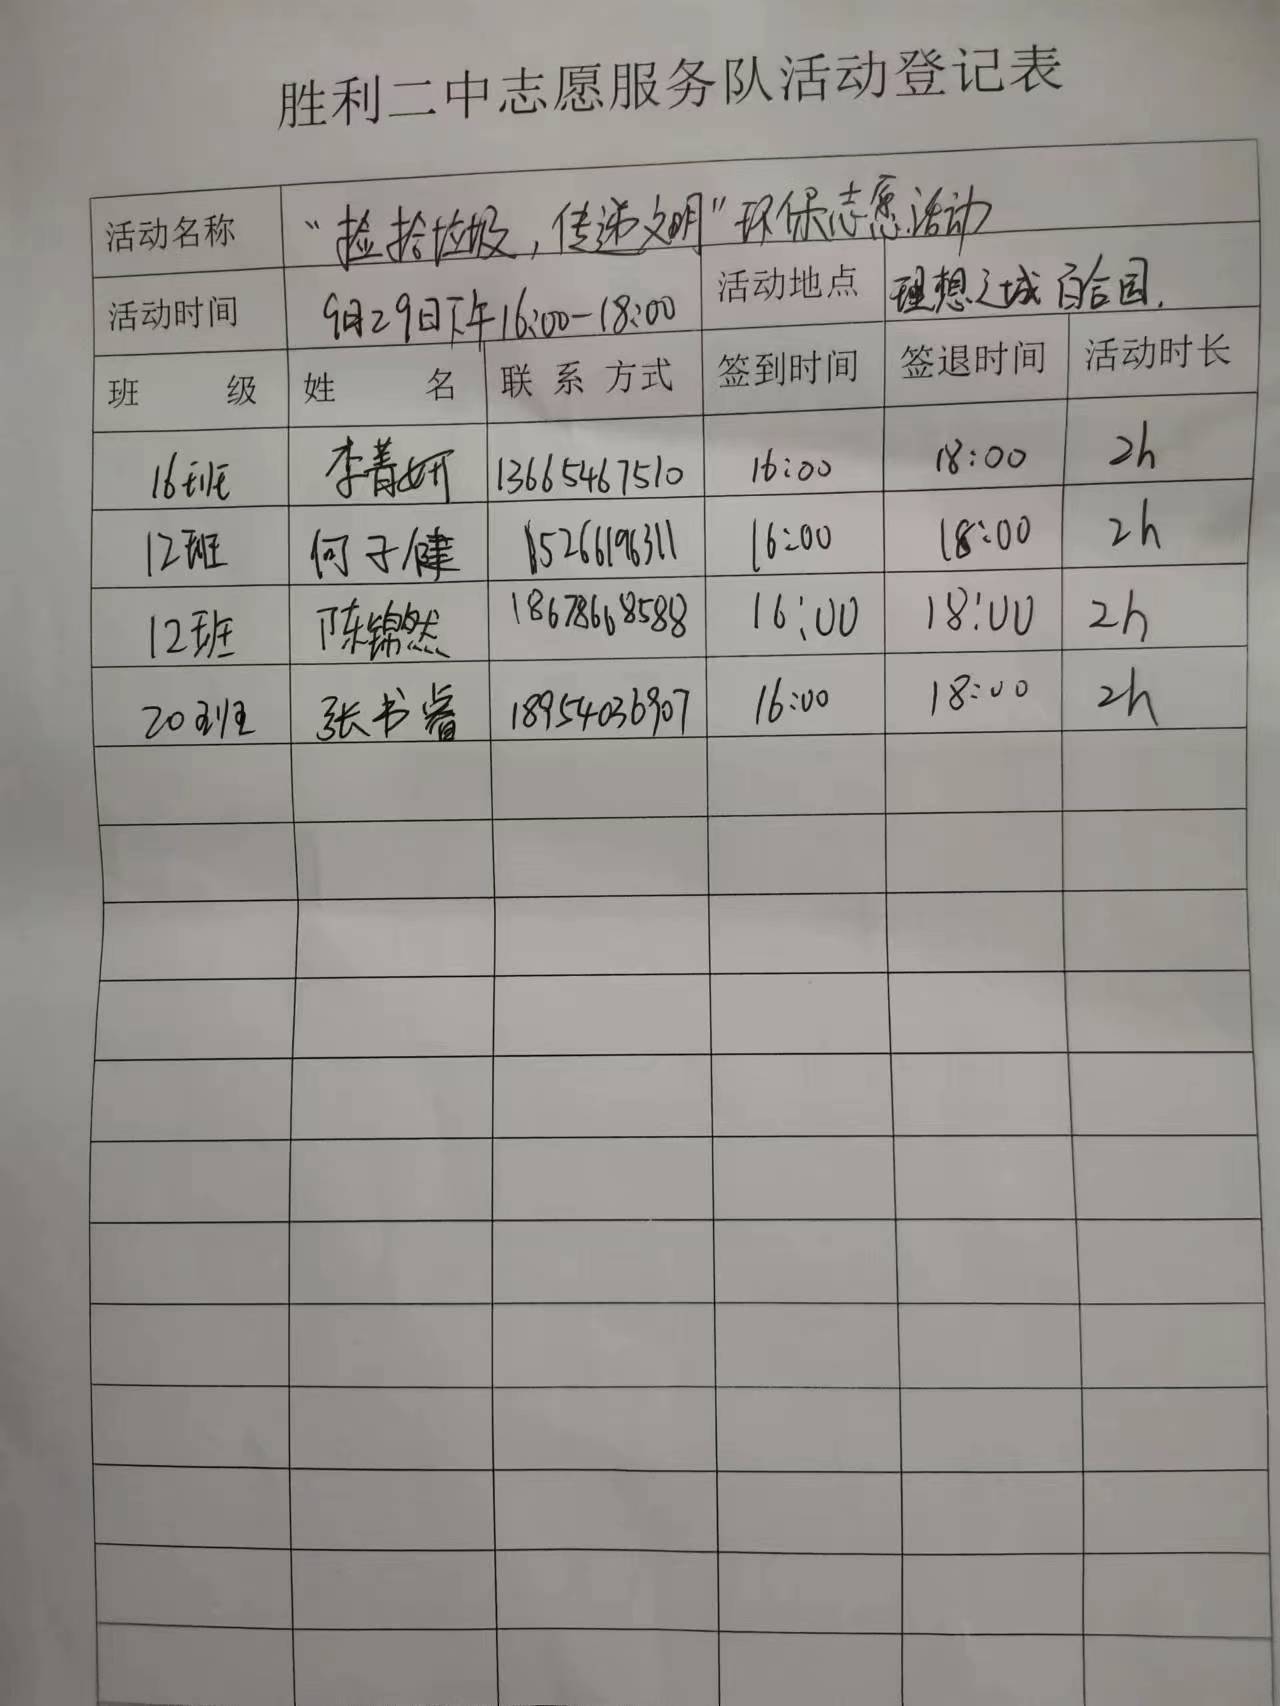 胜利二中志愿服务队活动登记表
活动名称 “捡拾垃圾，传递文明”环保志愿活动
活动时间 9月29日下午16:00-18:00 活动地点 理想之城百合园.
班 级 姓 名 联系方式 签到时间 签退时间 活动时长
16班 李菁妍 13665467510 16:00 18:00 2h
12班 何子健 15266196311 16:00 18:00 2h
12班 陈锦然 18678668588 16:00 18:00 2h
20班 张书睿 18954036907 16:00 18:00 2h